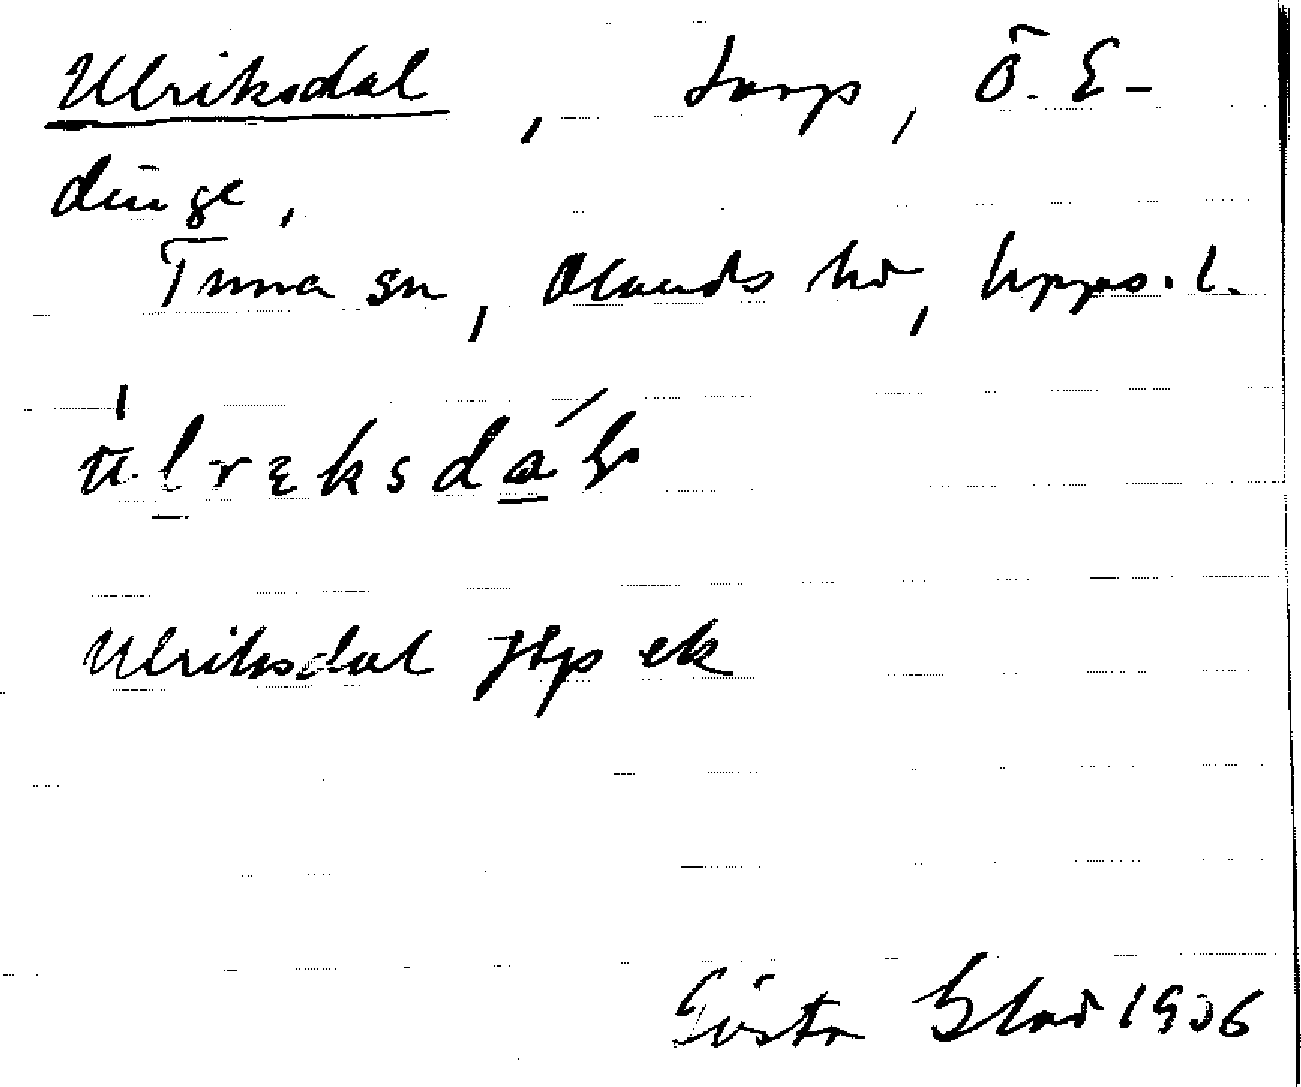 Ulriksdal, torp, Ö. E-
dinge,
Tuna sn, Olands hd, Upps. l.
Ulriksdal JEp ek
Gösta 1936